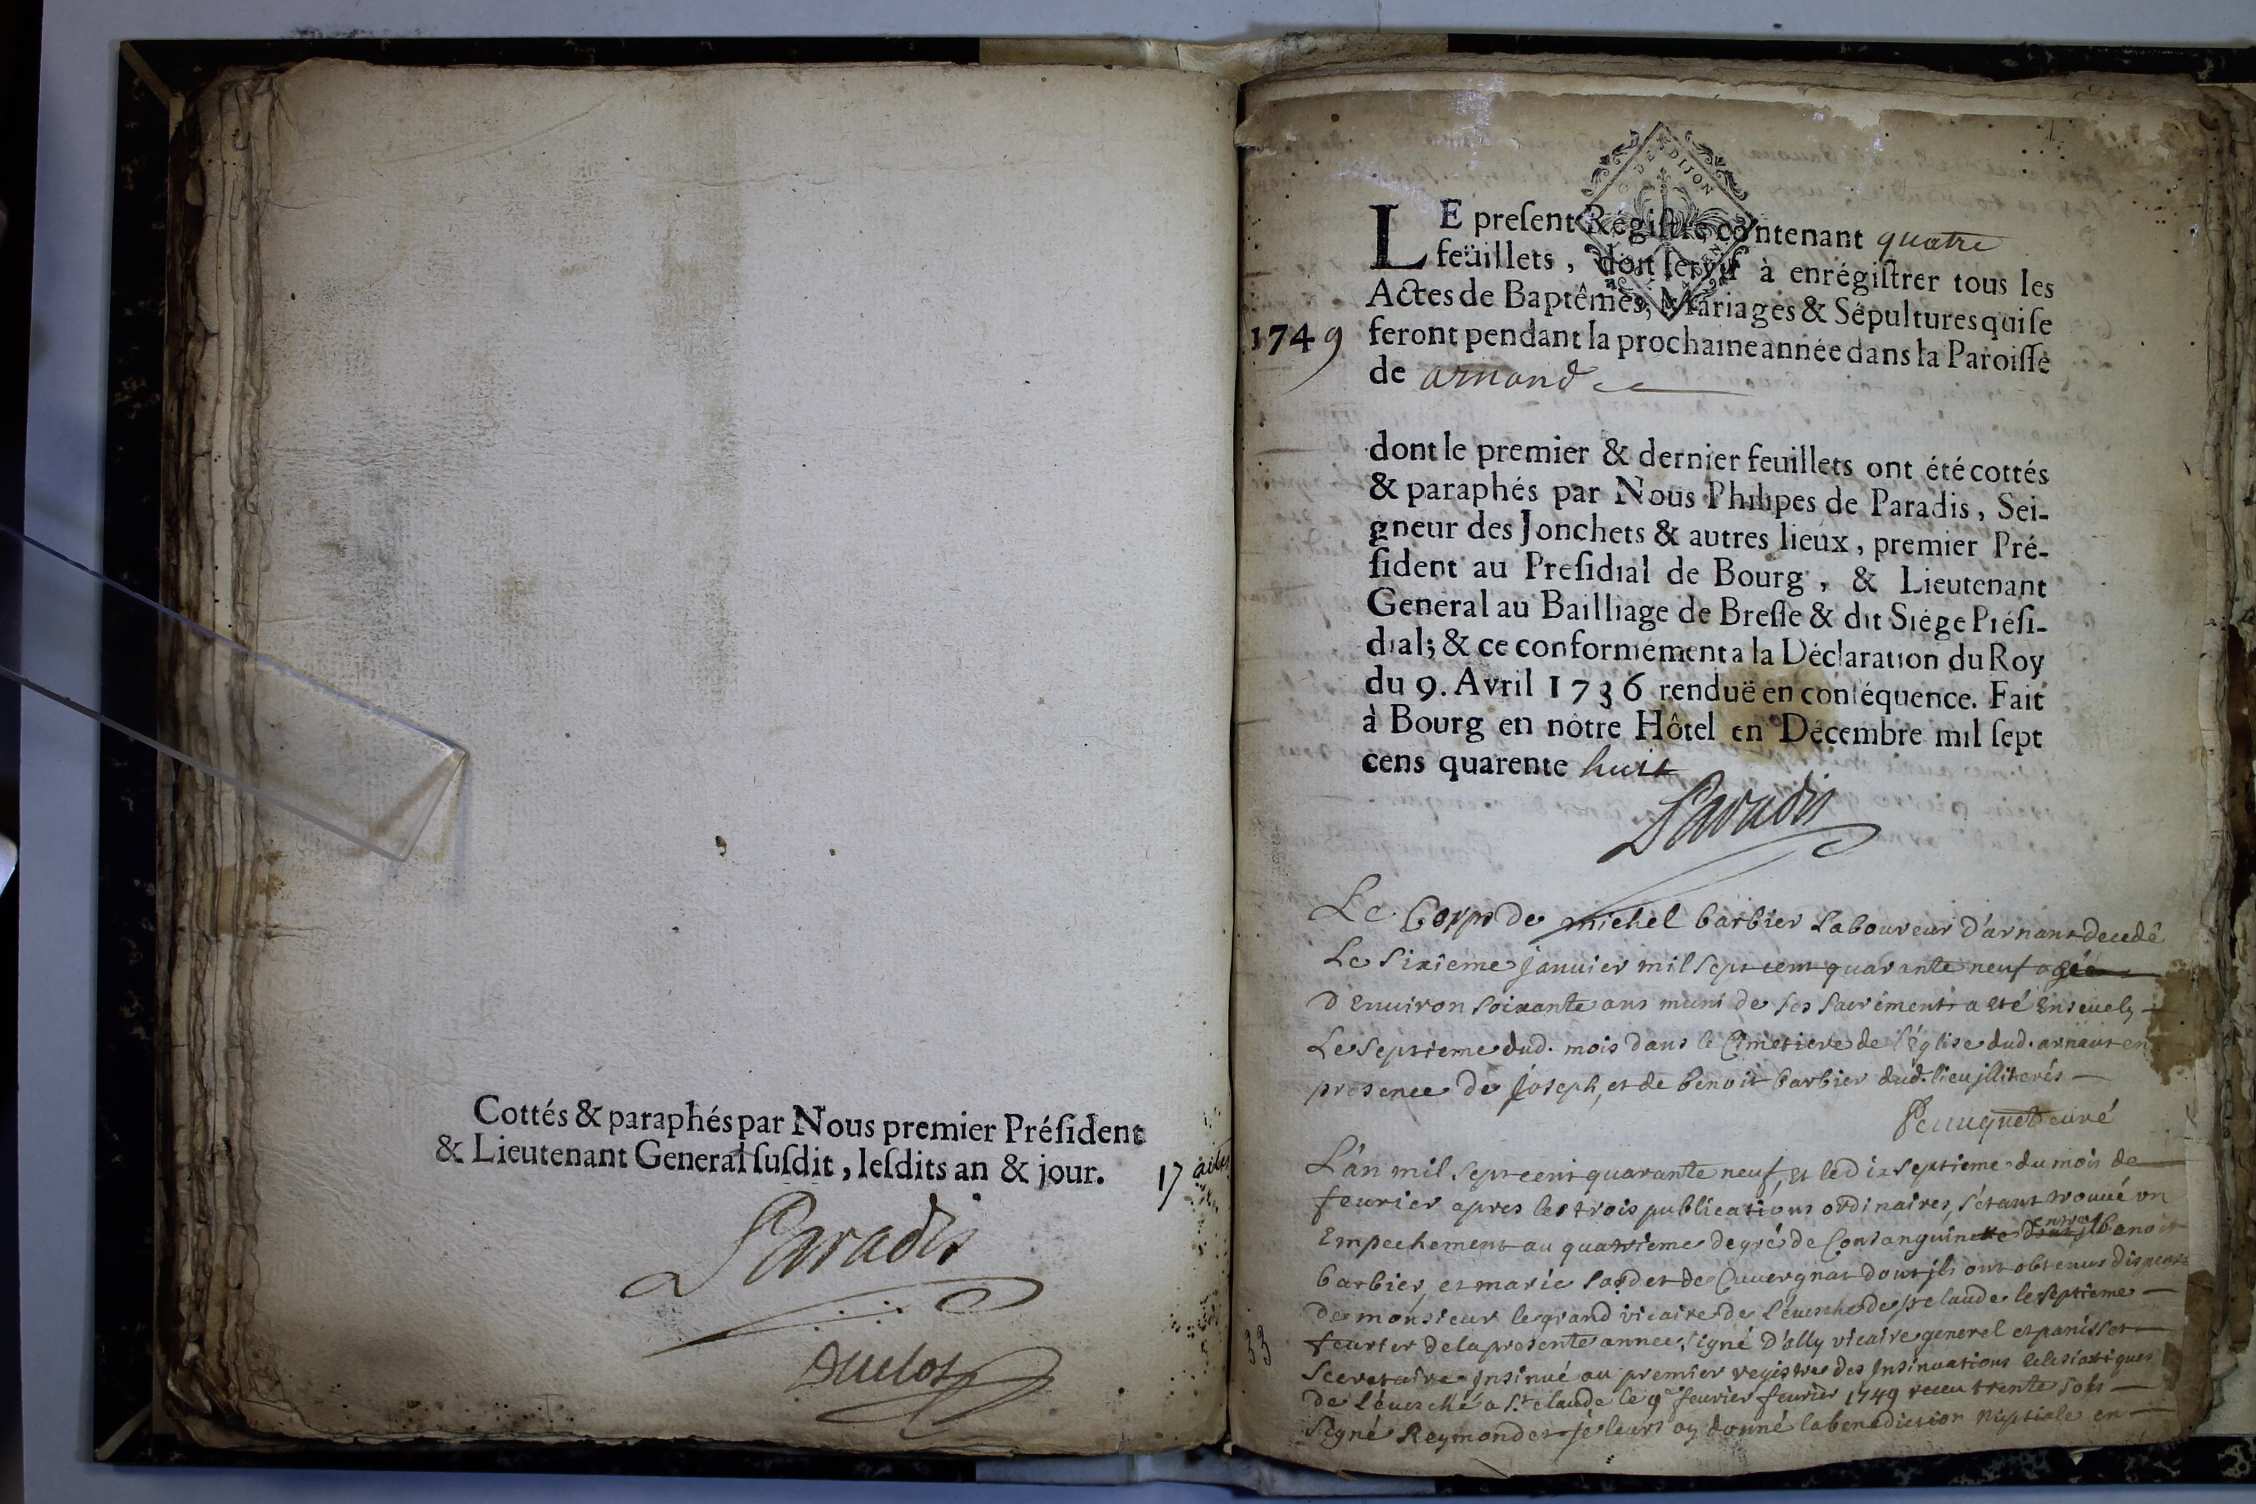 Cottés & paraphés par Nous premier Préſident
& Lieutenant General ſuſdit, leſdits an & jour.
Paradis
Duclos
17
DIJON
LE preſent Régiſtre contenant quatre
feüillets, doit ſervir à enrégiſtrer tous les
Actes de Baptêmes, Mariages & Sépultures qui ſe
1749 feront pendant la prochaine année dans la Paroiſſe
de arnand
dont le premier & dernier feuillets ont été cottés
& paraphés par Nous Philipes de Paradis, Sei-
gneur des Jonchets & autres lieux, premier Pré-
ſident au Preſidial de Bourg, & Lieutenant
General au Bailliage de Breſſe & dit Siége Préſi-
dial; & ce conformément a la Déclaration du Roy
du 9. Avril 1736 renduë en conſéquence. Fait
à Bourg en nôtre Hôtel en Décembre mil ſept
cens quarente huit
Paradis
Le Corps de michel barbier Laboureur d'arnant decedé
Le Sixieme janvier mil sept cent quarante neuf agée
D'Environ soixante ans muni de ses sacrements a eté Enseuely
Le Septieme dud. mois dans le Cimetiere de l'église dud. arnant en
presence de Joseph, et de benoit barbier dud. lieu jlliterés
curé
L'an mil sept cent quarante neuf, et le dix septieme du mois de
feurier apres les trois publications ordinaires, s'étant trouué un
Empechement au quatrieme degré de Consanguinette entre benoit
barbier, et marie de Cuuergnat dont jls ont obtenus dispense
de monsieur le grand vicaire de L'euesché de st claude le septieme
33 feurier de la presente annee, signé D'ally vicaire generel et panisset
Secretaire Insinué au premier registre des Insinuations Eclesiastiques
De L'éuesché a St. claude le 9e feurier feurier 1749 receu trente sols
Signé Reymondet je leurs ay donné la benediction Nuptiale en